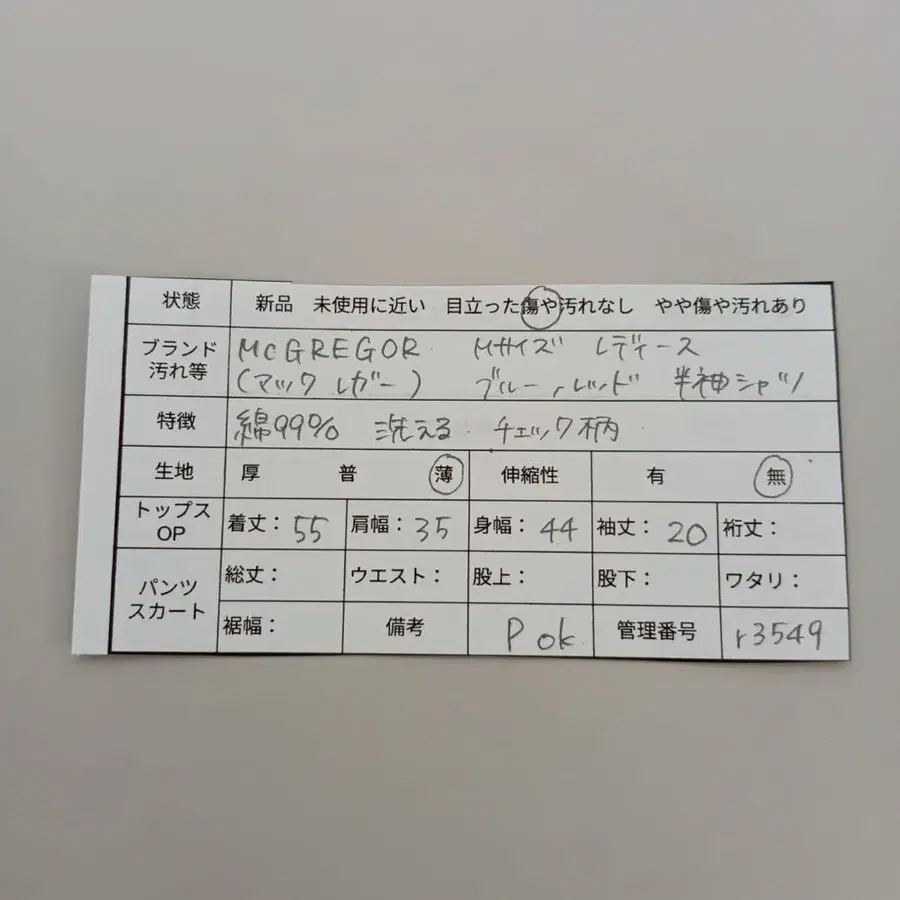 状態 新品 未使用に近い 目立った傷や汚れなし やや傷や汚れあり
ブランド McGREGOR Mサイズ レディース
汚れ等 (マックレガー) ブルー,レッド 半袖シャツ
特徴 綿99% 洗える チェック柄
生地 厚 普 薄 伸縮性 有 無
トップス
OP 着丈: 55 肩幅: 35 身幅: 44 袖丈: 20 裄丈:
パンツ 総丈: ウエスト: 股上: 股下: ワタリ:
スカート
裾幅: 備考 P ok 管理番号 r3549